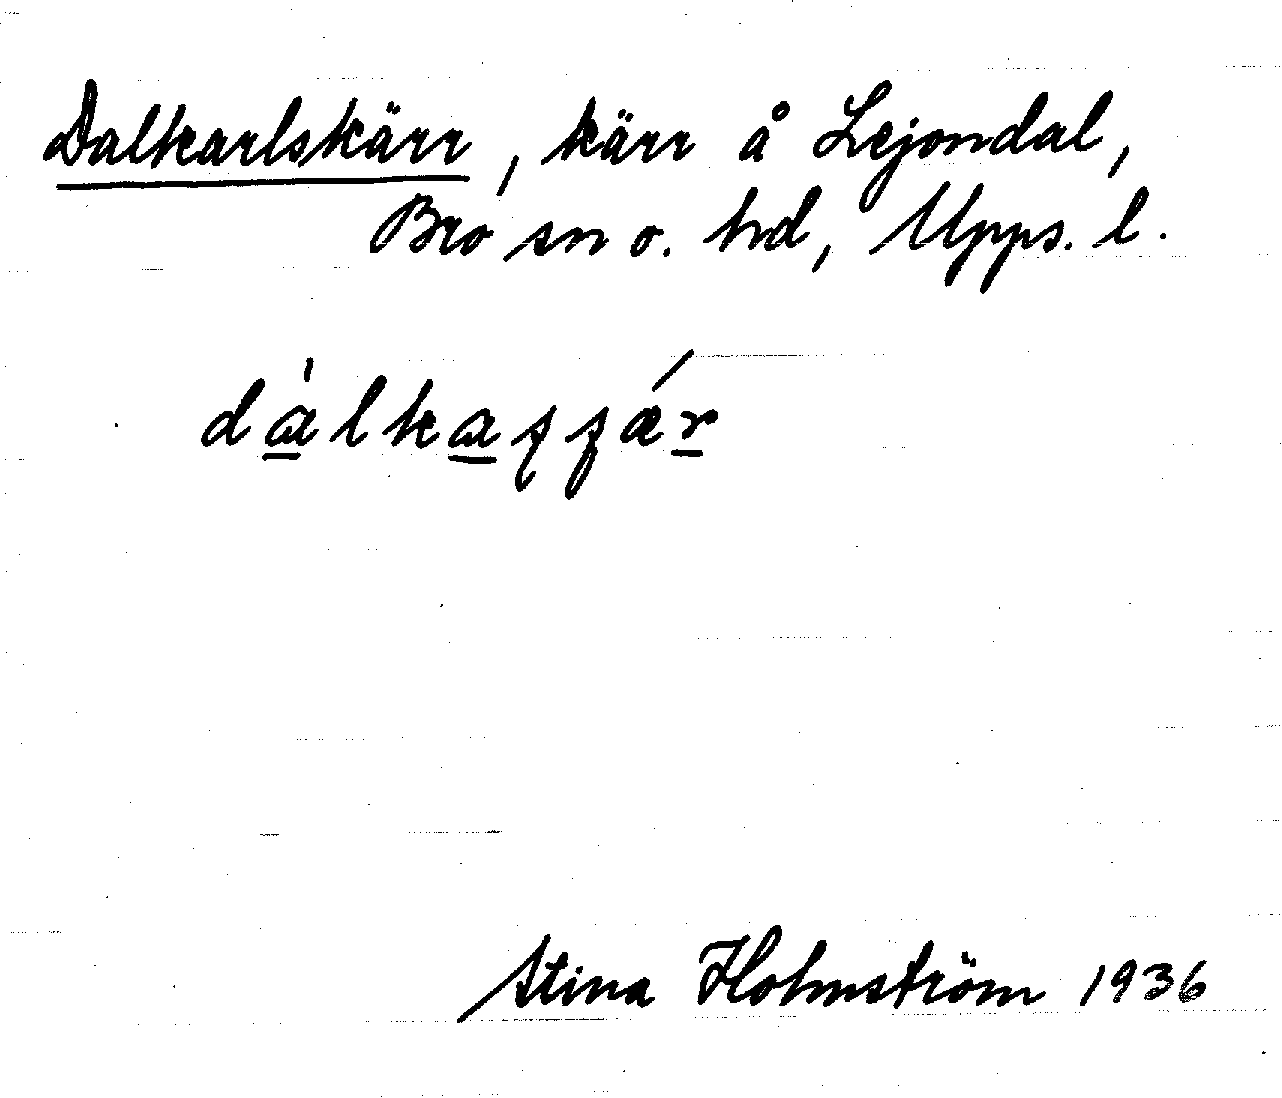 Dalkarlskärr, kärr å Lejondal,
Bro sn o. hd, Upps. l.
Stina Holmström 1936